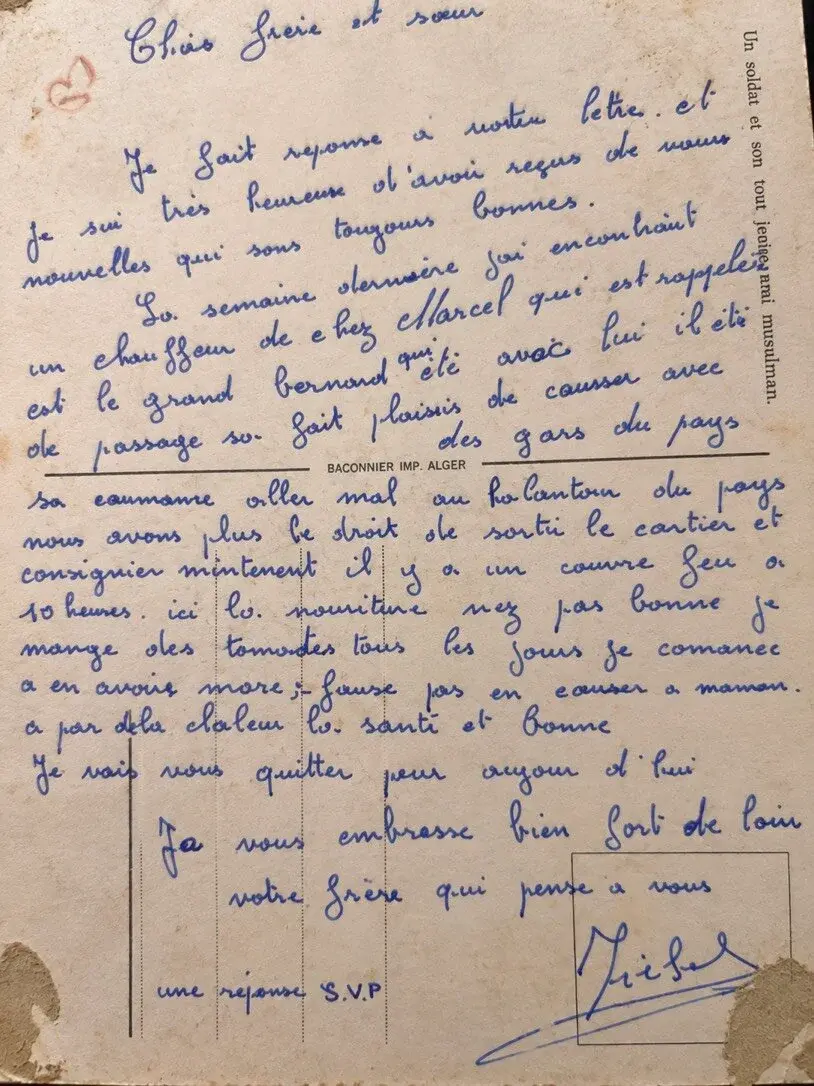 Chers frère et sœur
Je fait reponse a votre letre. et
je sui très heureuse d'avoir reçus de vous
nouvelles qui sons tougours bonnes.
La semaine dernière jai encontraint
un chauffeur de chez Marcel qui est rappeler
est le grand bernard qui été avac lui il été
de passage sa fait plaisis de causser avec
des gars du pays
BACONNIER IMP. ALGER
sa caumance aller mal au halantour du pays
nous avons plus le droit de sortir le cartier et
consignier mintenent il y a un couvre feu a
10 heures. ici la nouriture nez pas bonne je
mange des tomades tous les jours je comance
a en avoir mare ;- fause pas en causer a maman.
a par dela chaleur la santé et bonne
Je vais vous quitter pour aujour d'hui
Je vous embrasse bien fort de loin
votre frère qui pense a vous
une réponse S.V.P
Un soldat et son tout jeune ami musulman.